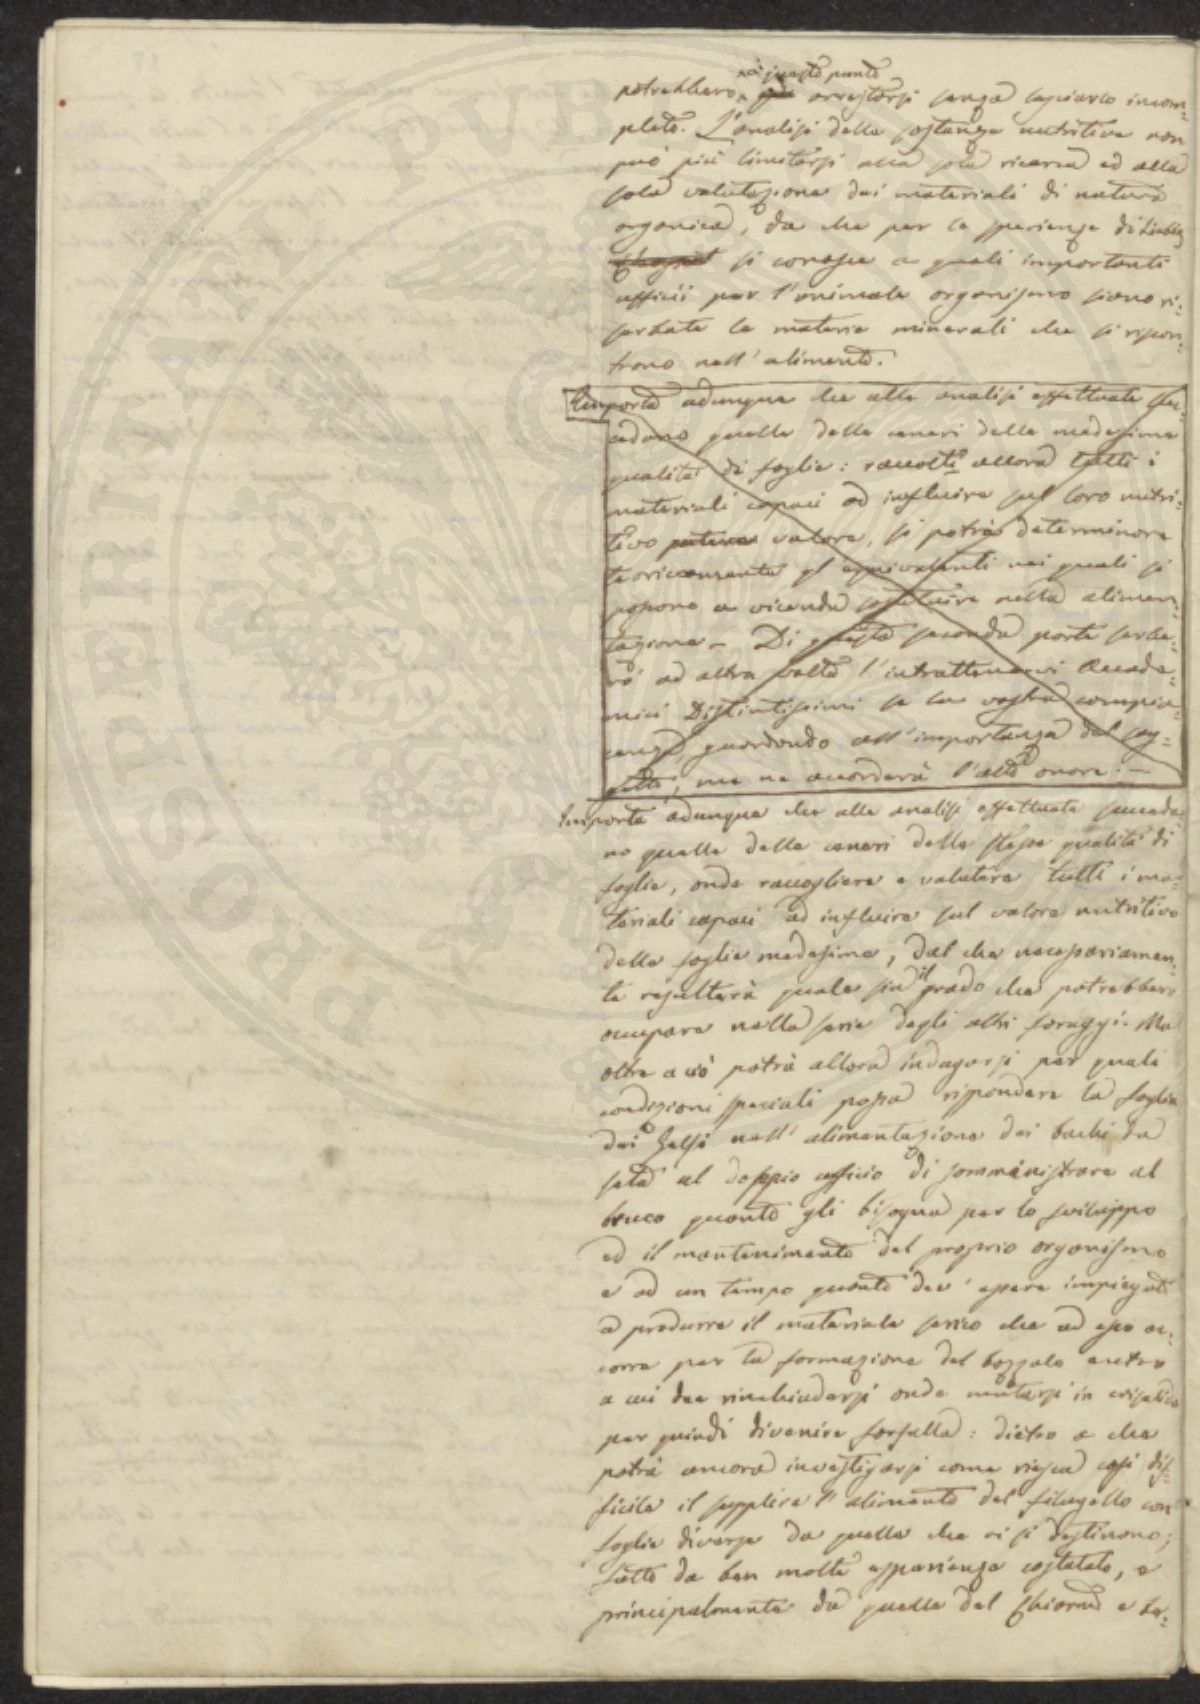 nè a questo punto
potrebbero arrestarsi senza lasciarlo incom=
pleto. L'analisi delle sostanze nutritive non
può più limitarsi alla sola ricerca ed alla
sola valutazione dei materiali di natura
organica, da che per le sperienze di Liebig
si conosce a quali importanti
ufficii per l'animale organismo siano ri=
serbate le materie minerali che si riscon=
trano nell'alimento.
Importa adunque che alle analisi effettuate suc=
cedano quelle delle ceneri delle medesime
qualità di foglie: raccolti allora tutti i
materiali capaci ad influire sul loro nutri=
tivo potere valore, si potrà determinare
teoricamente gl'equivalenti nei quali si
possono a vicenda sostituire nella alimen=
tazione – Di questa seconda parte serbe=
rò ad altra volta l'intrattenervi Accade=
mici Distintissimi se la vostra compia=
cenza, guardando all'importanza del sog=
getto, me ne accorderà l'alto onore. –
Importa adunque che alle analisi effettuate succeda=
no quelle delle ceneri delle stesse qualità di
foglie, onde raccogliere e valutare tutti i ma=
teriali capaci ad influire sul valore nutritivo
delle foglie medesime, dal che necessariamen=
te resulterà quale sia il grado che potrebbero
occupare nella serie degli altri foraggi. Ma
oltre a ciò potrà allora indagarsi per quali
condizioni speciali possa rispondere la foglia
dei Gelsi nell'alimentazione dei bachi da
seta al doppio officio di somministrare al
bruco quanto gli bisogna per lo sviluppo
ed il mantenimento del proprio organismo
e ad un tempo quanto dee essere impiegato
a produrre il materiale serico che ad esso oc=
corre per la formazione del bozzolo entro
a cui dee rinchiudersi onde mutarsi in crisalide
per quindi divenire farfalla: dietro a che
potrà ancora investigarsi come riesca così dif=
ficile il supplire l'alimento del filugello con
foglie diverse da quelle che vi si destinano;
fatto da ben molte esperienze costatato, e
principalmente da quelle del e